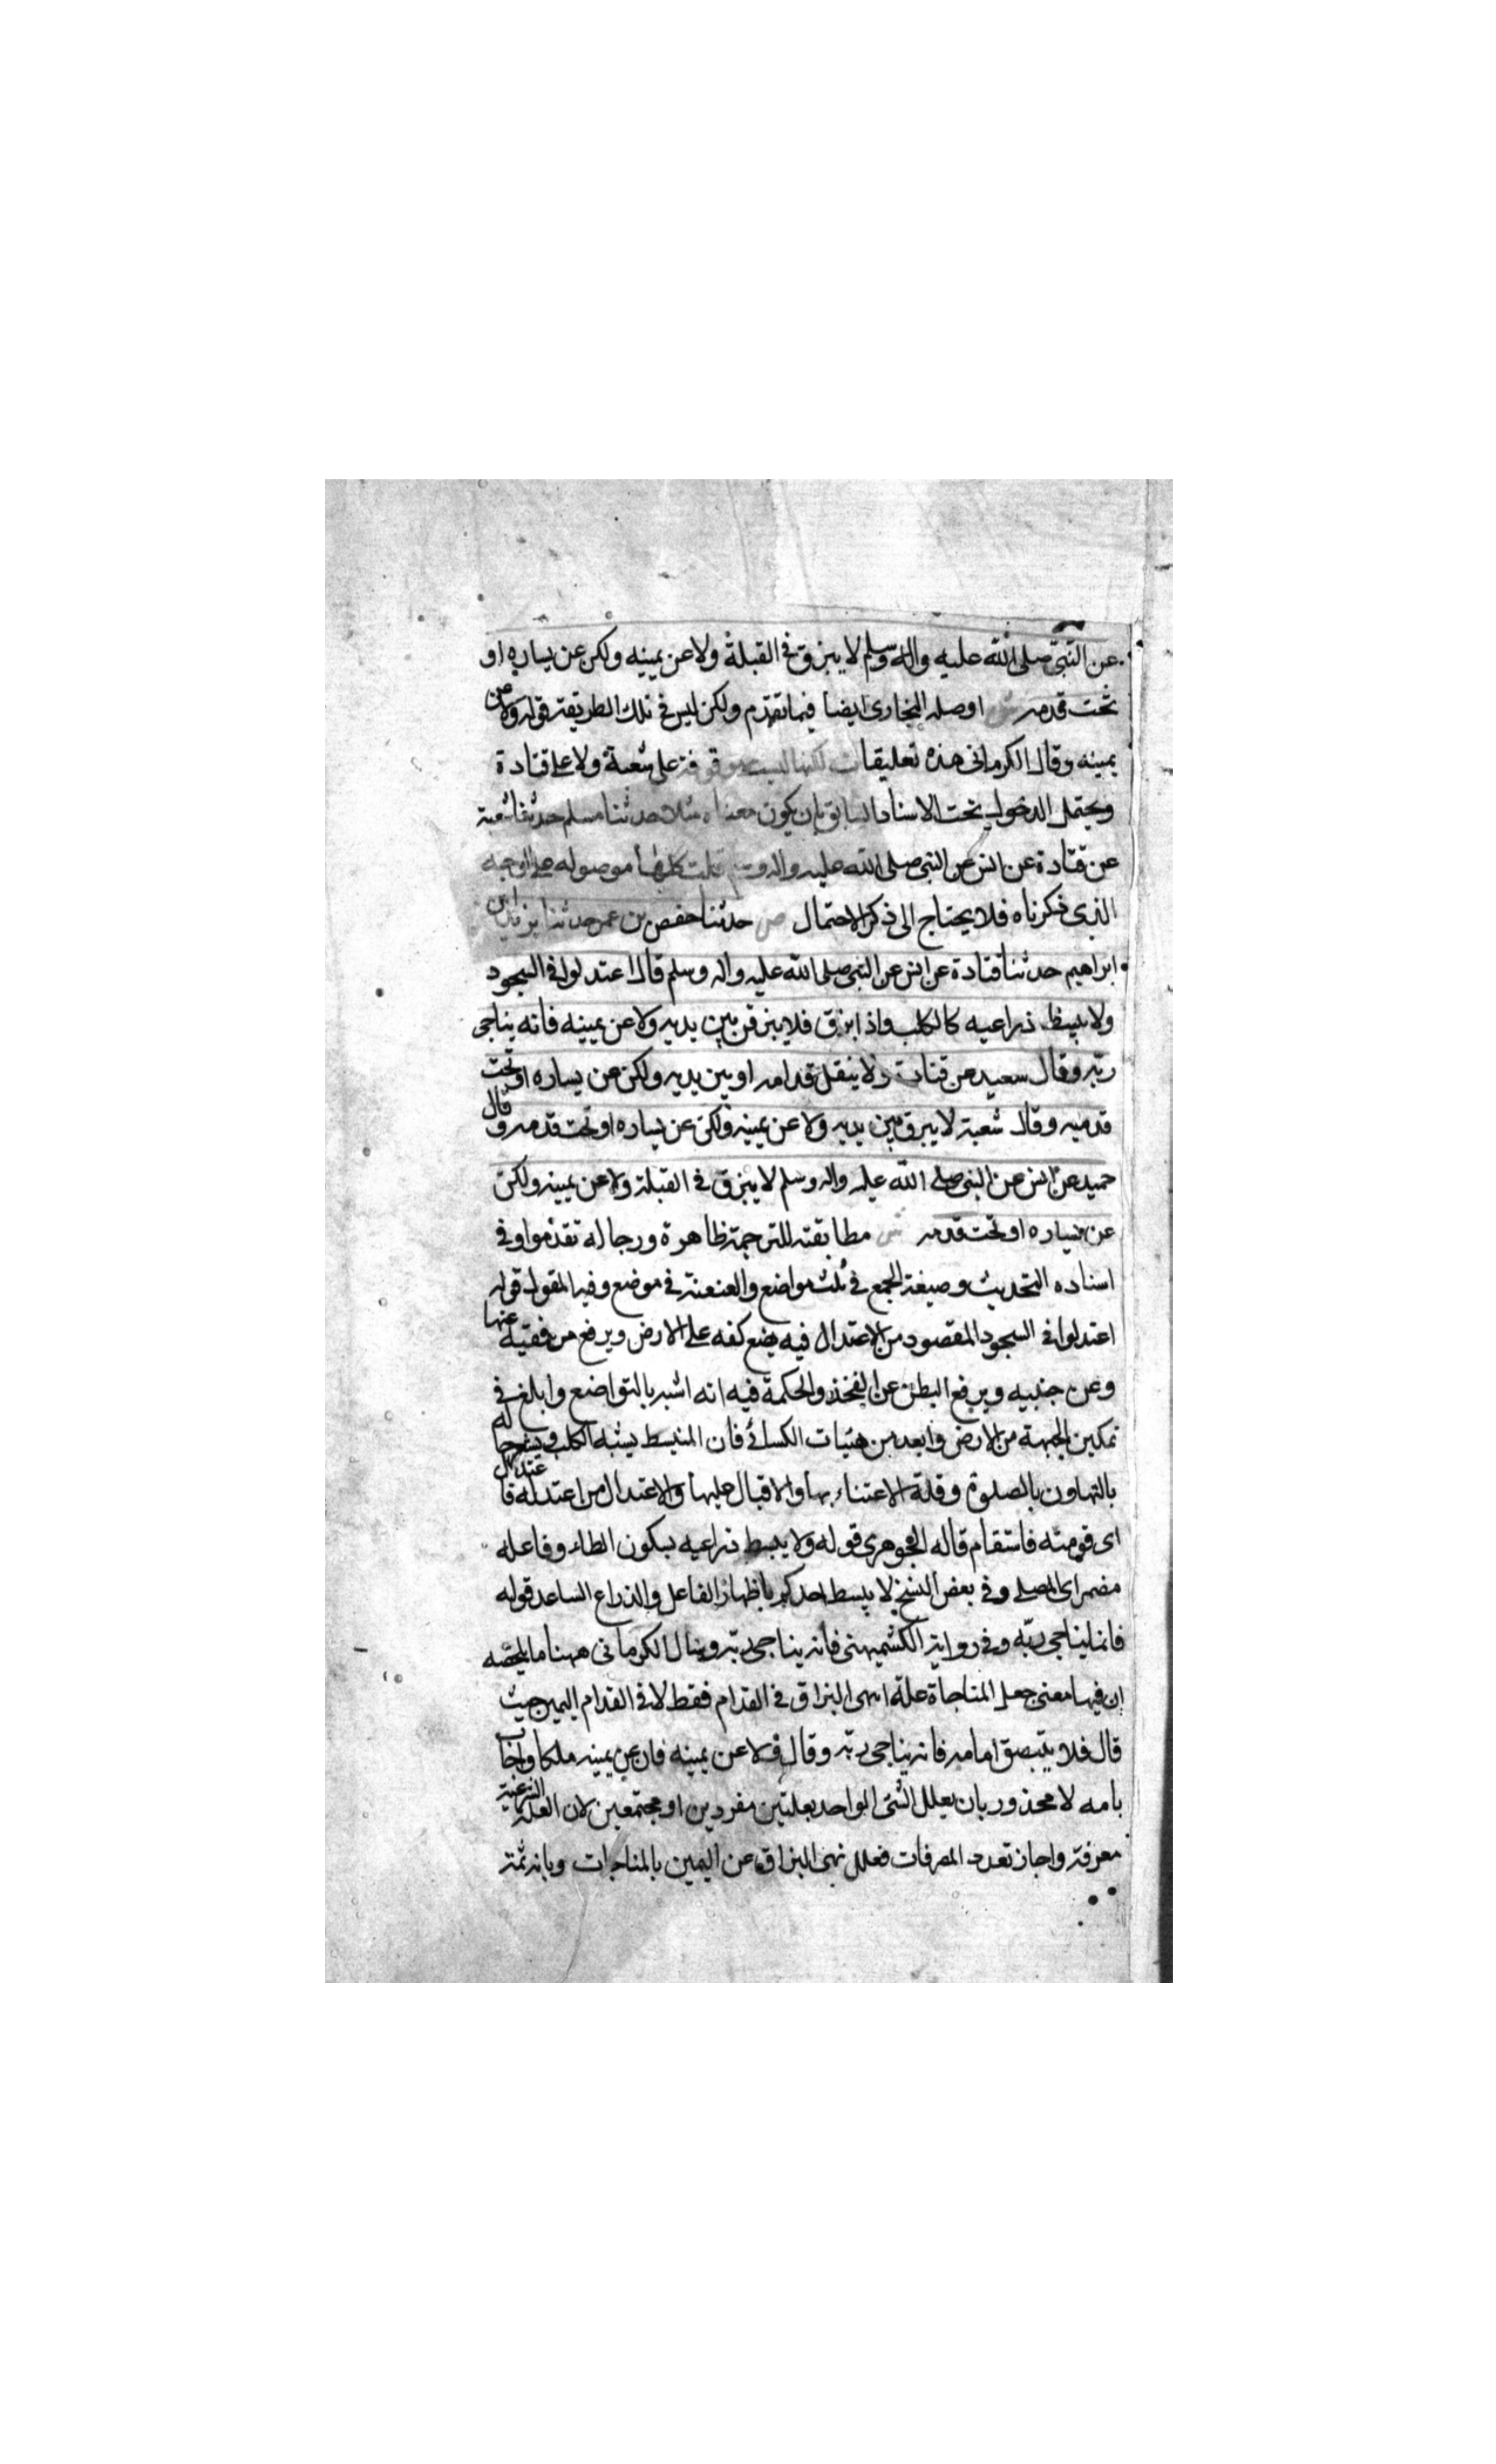 عن النبي صلى الله عليه واله وسلم لا يبزق في القبلة ولا عن يمينه ولكن عن يساره او
تحت قدمه ش اوصله البخاري ايضا فيما تقدم ولكن ليس في تلك الطريقة قوله ولا عن
يمينه وقال الكرماني هذه تعليقات لكنها ليست موقوفة على شعبة ولا على قتادة
ويحتمل الدخول تحت الاسناد السابق بان يكون معناه مثلا حدثنا مسلم حدثنا شعبة
عن قتادة عن انس عن النبي صلى الله عليه واله وسلم قلت كلها موصوله على الوجه
الذي ذكرناه فلا يحتاج الى ذكر الاحتمال ص حدثنا حفص بن عمر حدثنا يزيد ابن
ابراهيم حدثنا قتادة عن انس عن النبي صلى الله عليه واله وسلم قال اعتدلوا في السجود
ولا يبسط ذراعيه كالكلب واذا بزق فلا يبزقن بين يديه ولا عن يمينه فانه يناجي
ربه وقال سعيد عن قتادة لا يتفل قدامه او بين يديه ولكن عن يساره او تحت
قدميه وقال شعبة لا يبزق بين يديه ولا عن يمينه ولكن عن يساره او تحت قدمه وقال
حميد عن انس عن النبي صلى الله عليه واله وسلم لا يبزق في القبلة ولا عن يمينه ولكن
عن يساره او تحت قدمه ش مطابقته للترجمة ظاهرة ورجاله تقدموا وفي
اسناده التحديث وصيغة الجمع في ثلث مواضع والعنعنة في موضع وفيه القول قوله
اعتدلوا في السجود المقصود من الاعتدال فيه يضع كفه على الارض ويرفع مرفقيه عنها
وعن جنبيه ويرفع البطن عن الفخذ والحكمة فيه انه اشبه بالتواضع وابلغ في
تمكين الجبهة من الارض وابعد من هيئات الكسالى فان المنبسط يشبه الكلب
بالتهاون بالصلوة وقلة الاعتناء بها والاقبال عليها والاعتدال من اعتدله فاعتدل
اي قومته فاستقام قاله الجوهري قوله ولا يبسط ذراعيه بسكون الطاء وفاعله
مضمر اي المصلي وفي بعض النسخ لا يبسط احدكم باظهار الفاعل والذراع الساعد قوله
فانما يناجي ربه وفي رواية الكشميهني فانه يناجي ربه وقال الكرماني ههنا ما ملخصه
ان فيها معنى جعل المناجاة علة لنهي البزاق في القدام فقط لا في القدام اليمين حيث
قال فلا يتبصق امامه فانه يناجي ربه وقال ولا عن يمينه فان عن يمينه ملكا واجاب
بانه لا محذور بان يعلل الشئ الواحد بعلتين مفردين او مجتمعين لان العلة الشرعية
معرفة واجاز تعدد المعرفات فعلل نهي البزاق عن اليمين بالمناجات وبانه ثمة